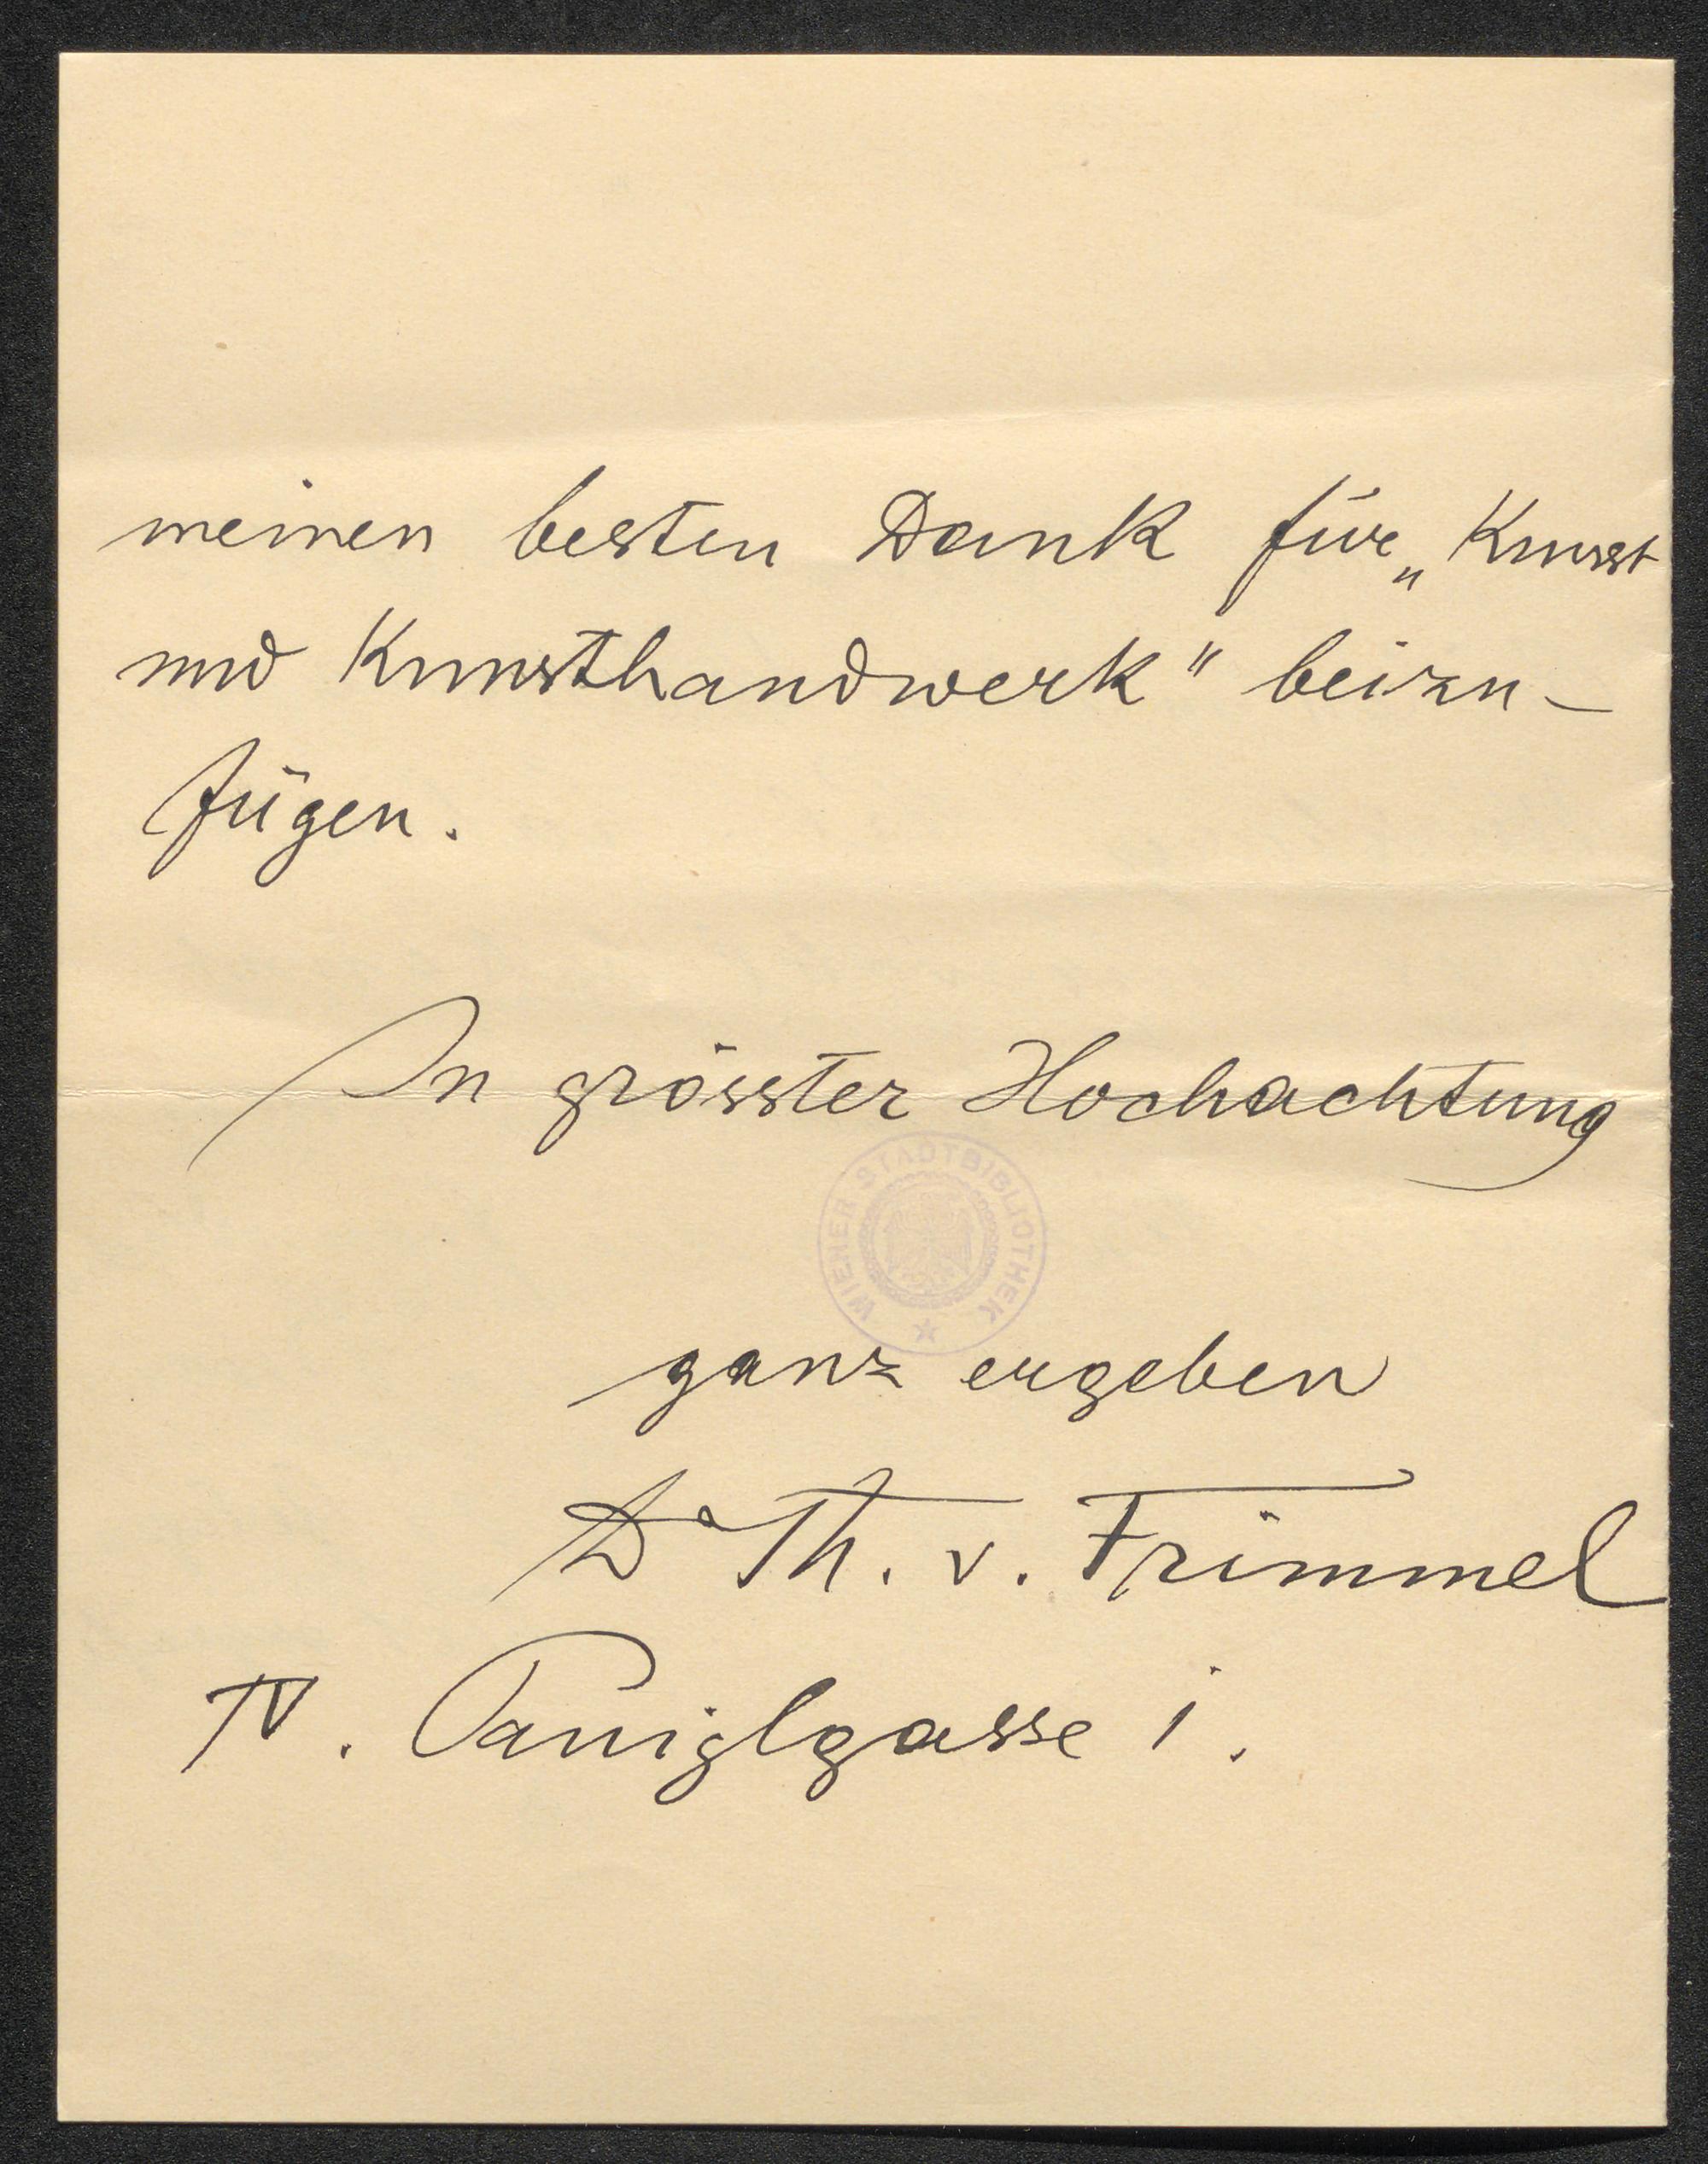 meinen besten Dank für „Kunst
und Kunsthandwerk" beizu-
fügen.
In grösster Hochachtung
WIENER STADTBIBLIOTHEK
ganz ergeben
Dr Th. v. Frimmel
IV. Paniglgasse 1.